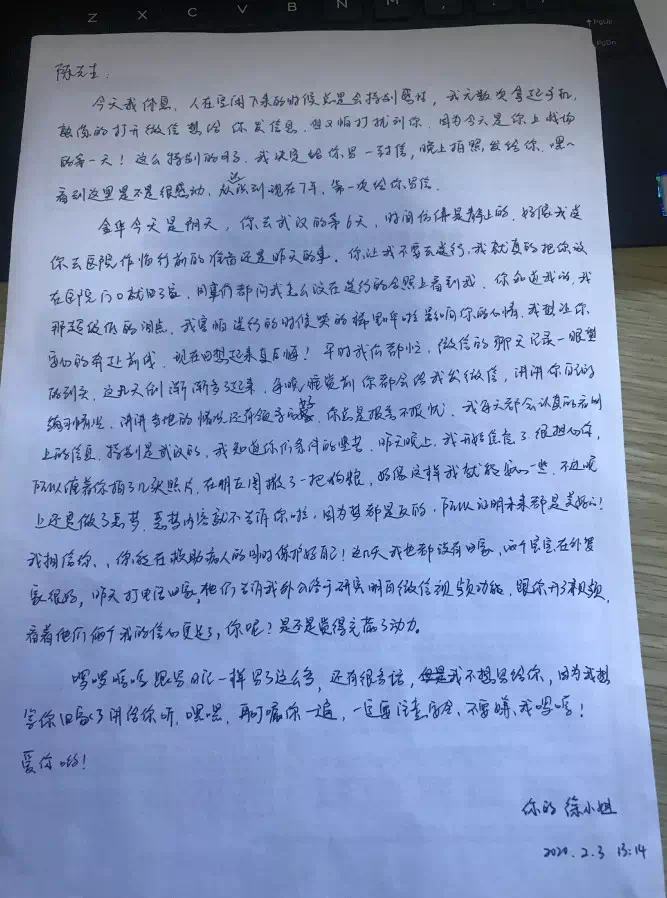 Z X C V B N M
PgUp
PgDn
陈先生:
今天我休息,人在空闲下来的时候总是会特别感性,我无数次拿起手机,
熟悉的打开微信想给你发信息,但又怕打扰到你,因为今天是你上战场
的第一天!这么特别的日子,我决定给你写一封信,晚上拍照发给你,嘿~
看到这里是不是很感动,从认识到现在7年,第一次给你写信。
金华今天是阴天,你去武汉的第6天,时间仿佛是静止的,好像我送
你去医院作临行前的准备还是昨天的事,你让我不要去送行,我就真的把你放
在医院门口就回了家,同事们都问我怎么没在送行的合照上看到我,你知道我的,我
那超级低的泪点,我害怕送行的时候哭的稀里哗啦影响你的心情,我想让你
安心的奔赴前线,现在回想起来真后悔!平时我们都忙,微信的聊天记录一眼望
的到头,这几天倒渐渐多了起来,每晚睡觉前你都会给我发微信,讲讲你自己的
编排情况,讲讲当地的情况还有领导的,你总是报喜不报忧,我每天都会认真的看网
上的信息,特别是武汉的,我知道你们条件的艰苦,昨天晚上,我开始焦虑了很担心你,
所以催着你拍了几张照片,在朋友圈撒了一把狗粮,好像这样我就能安心一些,不过晚
上还是做了恶梦,恶梦内容就不告诉你啦,因为梦都是反的,所以证明未来都是美好的!
我相信你,你能在救助病人的同时保护好自己!这几天我也都没有回家,两个宝宝在外婆
家很好,昨天打电话回家,他们告诉我外公终于研究明白微信视频功能,跟你开了视频,
看着他们俩个我的信心更足了,你呢?是不是觉得充满了动力。
啰啰嗦嗦跟写日记一样写了这么多,还有很多话,但是我不想写给你,因为我想
等你回家了讲给你听,嘿嘿,再叮嘱你一遍,一定要注意安全,不要嫌我啰嗦!
爱你哟!
你的徐小姐
2020.2.3 13:14